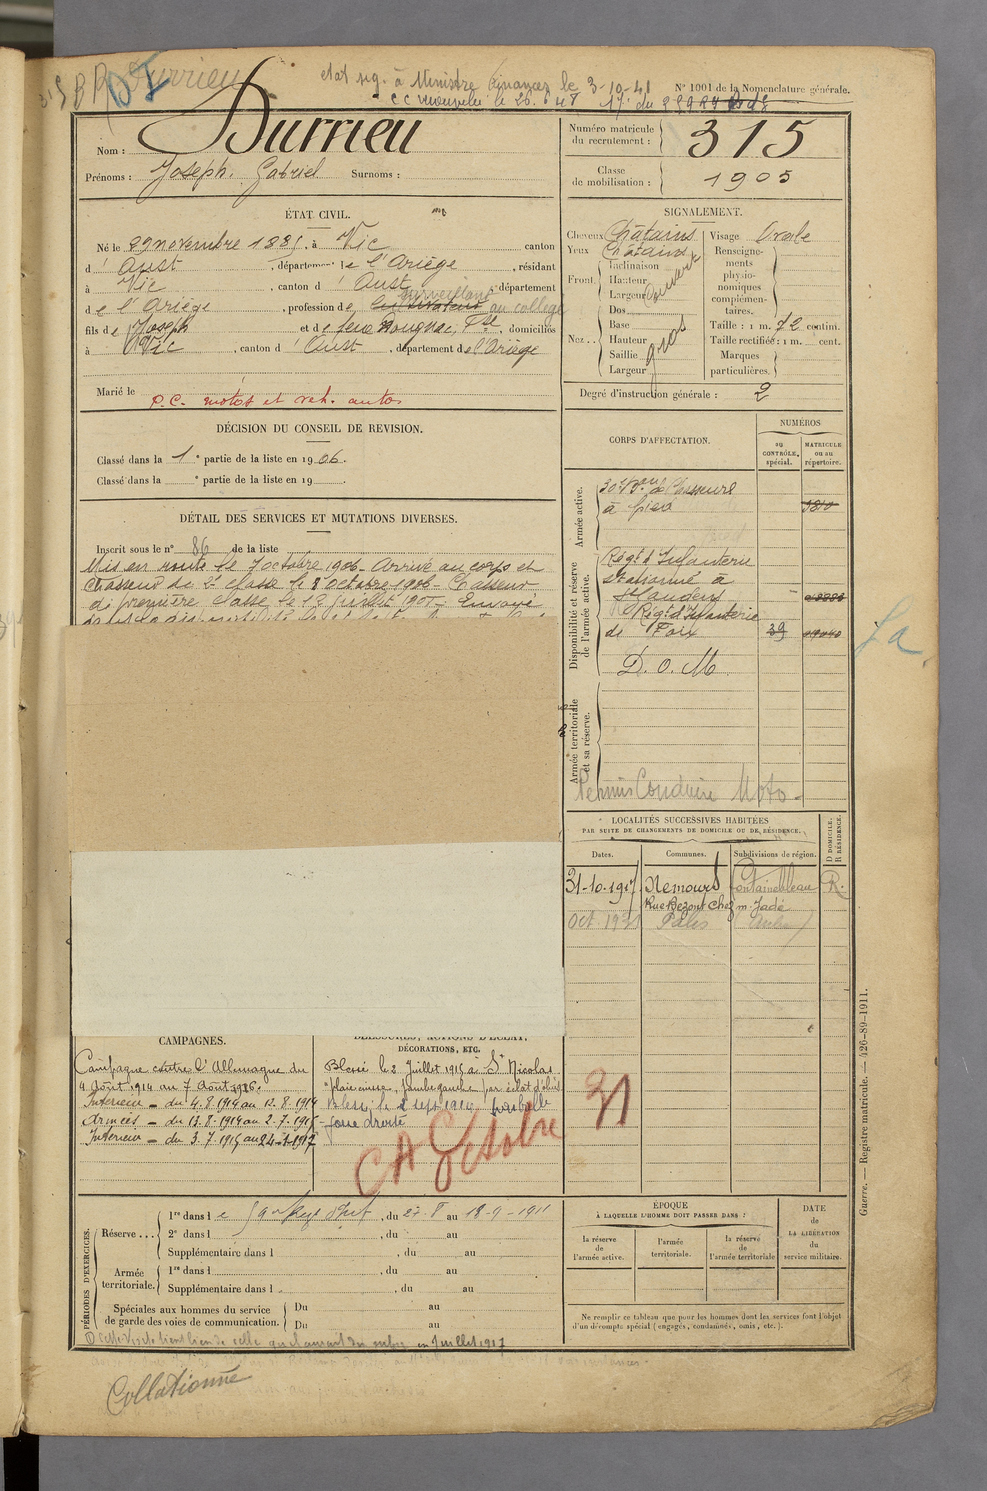 Durrieu
etat sig. à Ministre Finances le 3-10-41
N° 1001 de la Nomenclature générale.
Nom : Durrieu
Prénoms : Joseph. Gabriel Surnoms :
Numéro matricule du recrutement : 315
Classe de mobilisation : 1905
ÉTAT CIVIL.
Né le 29 novembre 1885. à Vic canton
d' Oust , département de l'Ariège , résidant
à Vic , canton d' Oust département
de l'Ariège , profession de cultivateur surveillant au collège
fils de Joseph et de feue Rougnac, , domiciliés
à Vic , canton d' Oust , département de l'Ariège
Marié le
P.C. motos et veh. autos
SIGNALEMENT.
Cheveux Châtains
Yeux Châtains
Front. Inclinaison
Hauteur
Largeur
Nez.. Dos
Base
Hauteur
Saillie
Largeur
gros
Visage Ovale
Renseignements physionomiques complémentaires.
Taille : 1 m. 72 centim.
Taille rectifiée : 1 m. cent.
Marques particulières.
Degré d'instruction générale : 2
DÉCISION DU CONSEIL DE REVISION.
Classé dans la 1e partie de la liste en 1906.
Classé dans la e partie de la liste en 19 .
DÉTAIL DES SERVICES ET MUTATIONS DIVERSES.
Inscrit sous le n° 86 de la liste
Mis en route le 7 octobre 1906 - Arrivé au corps et
Chasseur de 2e classe le 8 octobre 1906 - Chasseur
de première classe le 12 juillet 1907 - Envoyé
CORPS D'AFFECTATION.
NUMÉROS
au CONTRÔLE spécial.
MATRICULE ou au répertoire.
Armée active.
30e Bon de Chasseurs
à pied
Disponibilité et réserve de l'armée active.
Régt d'Infanterie
stationné à
St Gaudens
Régt d'Infanterie
de Foix 39
D. O. M
Armée territoriale et sa réserve.
Permis Conduire Moto -
LOCALITÉS SUCCESSIVES HABITÉES
PAR SUITE DE CHANGEMENTS DE DOMICILE OU DE RÉSIDENCE.
Dates. Communes. Subdivisions de région. D DOMICILE. R RÉSIDENCE.
31-10-1917 Nemours Fontainebleau R.
Rue Bezout chez m. Jadé
Oct 1931 Paris
CAMPAGNES.
Campagne contre l'Allemagne du
4 Août 1914 au 7 Août 1916.
Intérieur - du 4.8.1914 au 12.8.1914
Armées - du 13.8.1914 au 2.7.1915
Intérieur - du 3.7.1915 au 24-1-1917
BLESSURES, ACTIONS D'ÉCLAT,
DÉCORATIONS, ETC.
Blessé le 2 Juillet 1915 à St Nicolas
"plaie jambe gauche par éclat d'obus
Blessé le 2 sept 1914 par balle
joue droite
CA Octobre 31
PÉRIODES D'EXERCICES.
Réserve... 1re dans le 59e Regt Inf , du 27-8 au 18-9-1911
2e dans l , du au
Supplémentaire dans l , du au
Armée territoriale. 1re dans l , du au
Supplémentaire dans l , du au
Spéciales aux hommes du service de garde des voies de communication. Du au
Du au
ÉPOQUE
À LAQUELLE L'HOMME DOIT PASSER DANS :
la réserve de l'armée active.
l'armée territoriale.
la réserve de l'armée territoriale
DATE de LA LIBÉRATION du service militaire.
Ne remplir ce tableau que pour les hommes dont les services font l'objet
d'un décompte spécial (engagés, condamnés, omis, etc.).
Guerre. — Registre matricule. — 426-89-1911.
Collationné